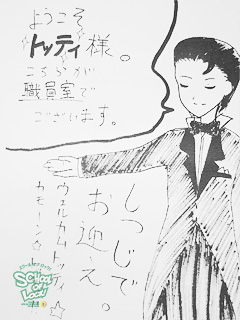 ようこそ
トッティ様。
こちらが
職員室で
ございます。
しつじで
お迎え。
ウェルカムトッティ☆
カモーン☆
SCHOOL
OF
LOCK!